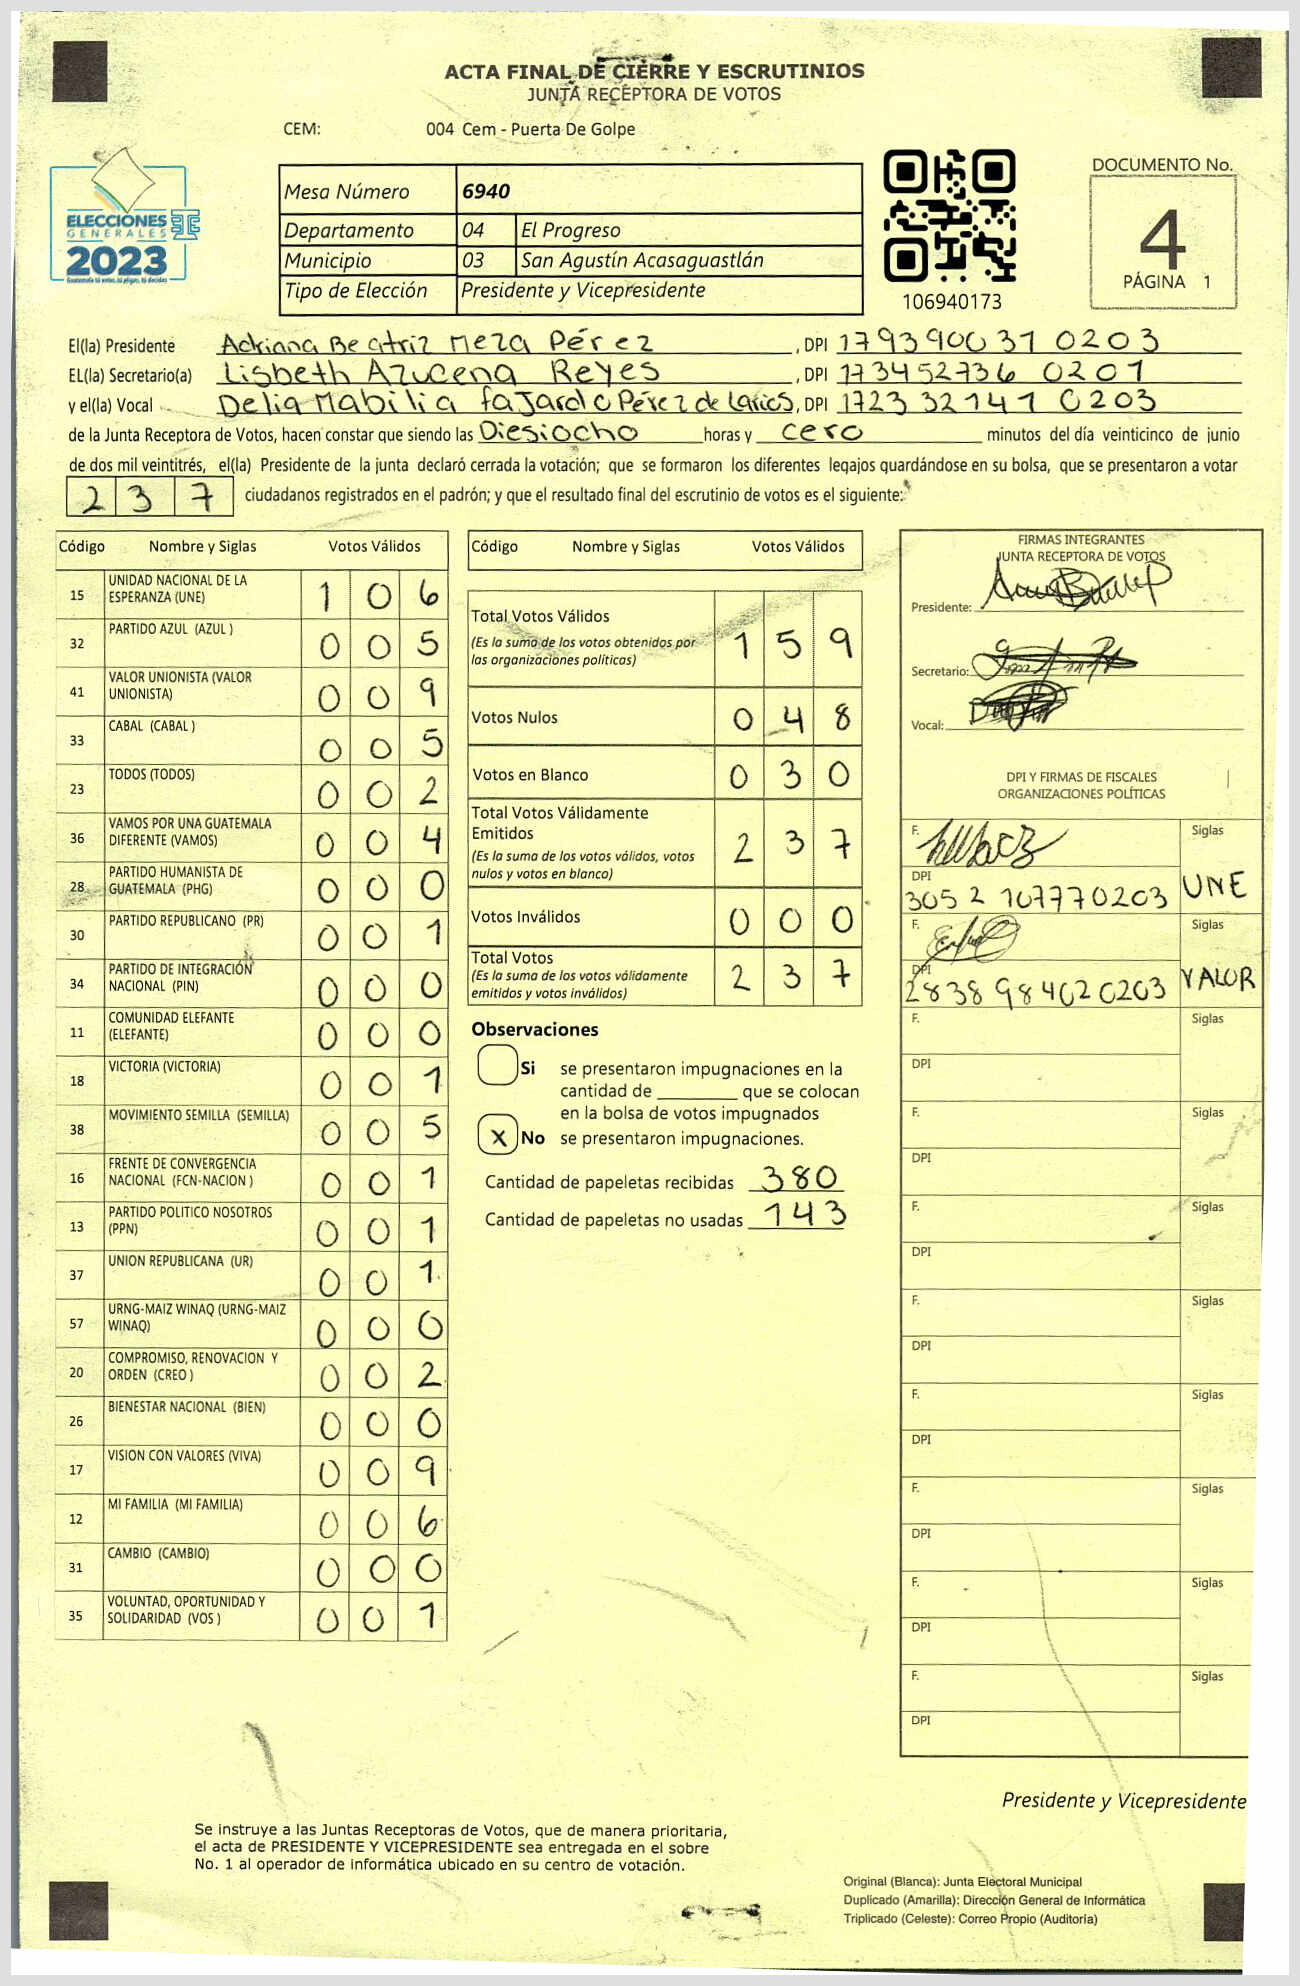 ACTA FINAL DE CIERRE Y ESCRUTINIOS
JUNTA RECEPTORA DE VOTOS
CEM: 004 Cem - Puerta De Golpe
ELECCIONES
GENERALES
2023
Mesa Número 6940
Departamento 04 El Progreso
Municipio 03 San Agustín Acasaguastlán
Tipo de Elección Presidente y Vicepresidente
106940173
DOCUMENTO No.
4
PÁGINA 1
El(la) Presidente Adriana Beatriz Meza Pérez, DPI 179390031 0203
EL(la) Secretario(a) Lisbeth Azucena Reyes, DPI 173452736 0201
y el(la) Vocal Delia Mabilia fajardo Pérez de Larios, DPI 172332141 0203
de la Junta Receptora de Votos, hacen constar que siendo las Diesiocho horas y cero minutos del día veinticinco de junio
de dos mil veintitrés, el(la) Presidente de la junta declaró cerrada la votación; que se formaron los diferentes legajos quardándose en su bolsa, que se presentaron a votar
237 ciudadanos registrados en el padrón; y que el resultado final del escrutinio de votos es el siguiente:
Código Nombre y Siglas Votos Válidos
15 UNIDAD NACIONAL DE LA ESPERANZA (UNE) 1 0 6
32 PARTIDO AZUL (AZUL ) 0 0 5
41 VALOR UNIONISTA (VALOR UNIONISTA) 0 0 9
33 CABAL (CABAL ) 0 0 5
23 TODOS (TODOS) 0 0 2
36 VAMOS POR UNA GUATEMALA DIFERENTE (VAMOS) 0 0 4
28 PARTIDO HUMANISTA DE GUATEMALA (PHG) 0 0 0
30 PARTIDO REPUBLICANO (PR) 0 0 1
34 PARTIDO DE INTEGRACIÓN NACIONAL (PIN) 0 0 0
11 COMUNIDAD ELEFANTE (ELEFANTE) 0 0 0
18 VICTORIA (VICTORIA) 0 0 1
38 MOVIMIENTO SEMILLA (SEMILLA) 0 0 5
16 FRENTE DE CONVERGENCIA NACIONAL (FCN-NACION ) 0 0 1
13 PARTIDO POLITICO NOSOTROS (PPN) 0 0 1
37 UNION REPUBLICANA (UR) 0 0 1
57 URNG-MAIZ WINAQ (URNG-MAIZ WINAQ) 0 0 0
20 COMPROMISO, RENOVACION Y ORDEN (CREO ) 0 0 2
26 BIENESTAR NACIONAL (BIEN) 0 0 0
17 VISION CON VALORES (VIVA) 0 0 9
12 MI FAMILIA (MI FAMILIA) 0 0 6
31 CAMBIO (CAMBIO) 0 0 0
35 VOLUNTAD, OPORTUNIDAD Y SOLIDARIDAD (VOS ) 0 0 1
Código Nombre y Siglas Votos Válidos
Total Votos Válidos 1 5 9
(Es la suma de los votos obtenidos por
las organizaciones políticas)
Votos Nulos 0 4 8
Votos en Blanco 0 3 0
Total Votos Válidamente
Emitidos 2 3 7
(Es la suma de los votos válidos, votos
nulos y votos en blanco)
Votos Inválidos 0 0 0
Total Votos 2 3 7
(Es la suma de los votos válidamente
emitidos y votos inválidos)
Observaciones
Si se presentaron impugnaciones en la
cantidad de ________ que se colocan
en la bolsa de votos impugnados
X No se presentaron impugnaciones.
Cantidad de papeletas recibidas 380
Cantidad de papeletas no usadas 143
FIRMAS INTEGRANTES
JUNTA RECEPTORA DE VOTOS
Presidente:
Secretario:
Vocal:
DPI Y FIRMAS DE FISCALES
ORGANIZACIONES POLÍTICAS
F. Siglas
DPI
3052 107770203 UNE
F. Siglas
DPI
2838 984020203 VALOR
F. Siglas
DPI
F. Siglas
DPI
F. Siglas
DPI
F. Siglas
DPI
F. Siglas
DPI
F. Siglas
DPI
F. Siglas
DPI
F. Siglas
DPI
Presidente y Vicepresidente
Se instruye a las Juntas Receptoras de Votos, que de manera prioritaria,
el acta de PRESIDENTE Y VICEPRESIDENTE sea entregada en el sobre
No. 1 al operador de informática ubicado en su centro de votación.
Original (Blanca): Junta Electoral Municipal
Duplicado (Amarilla): Dirección General de Informática
Triplicado (Celeste): Correo Propio (Auditoría)